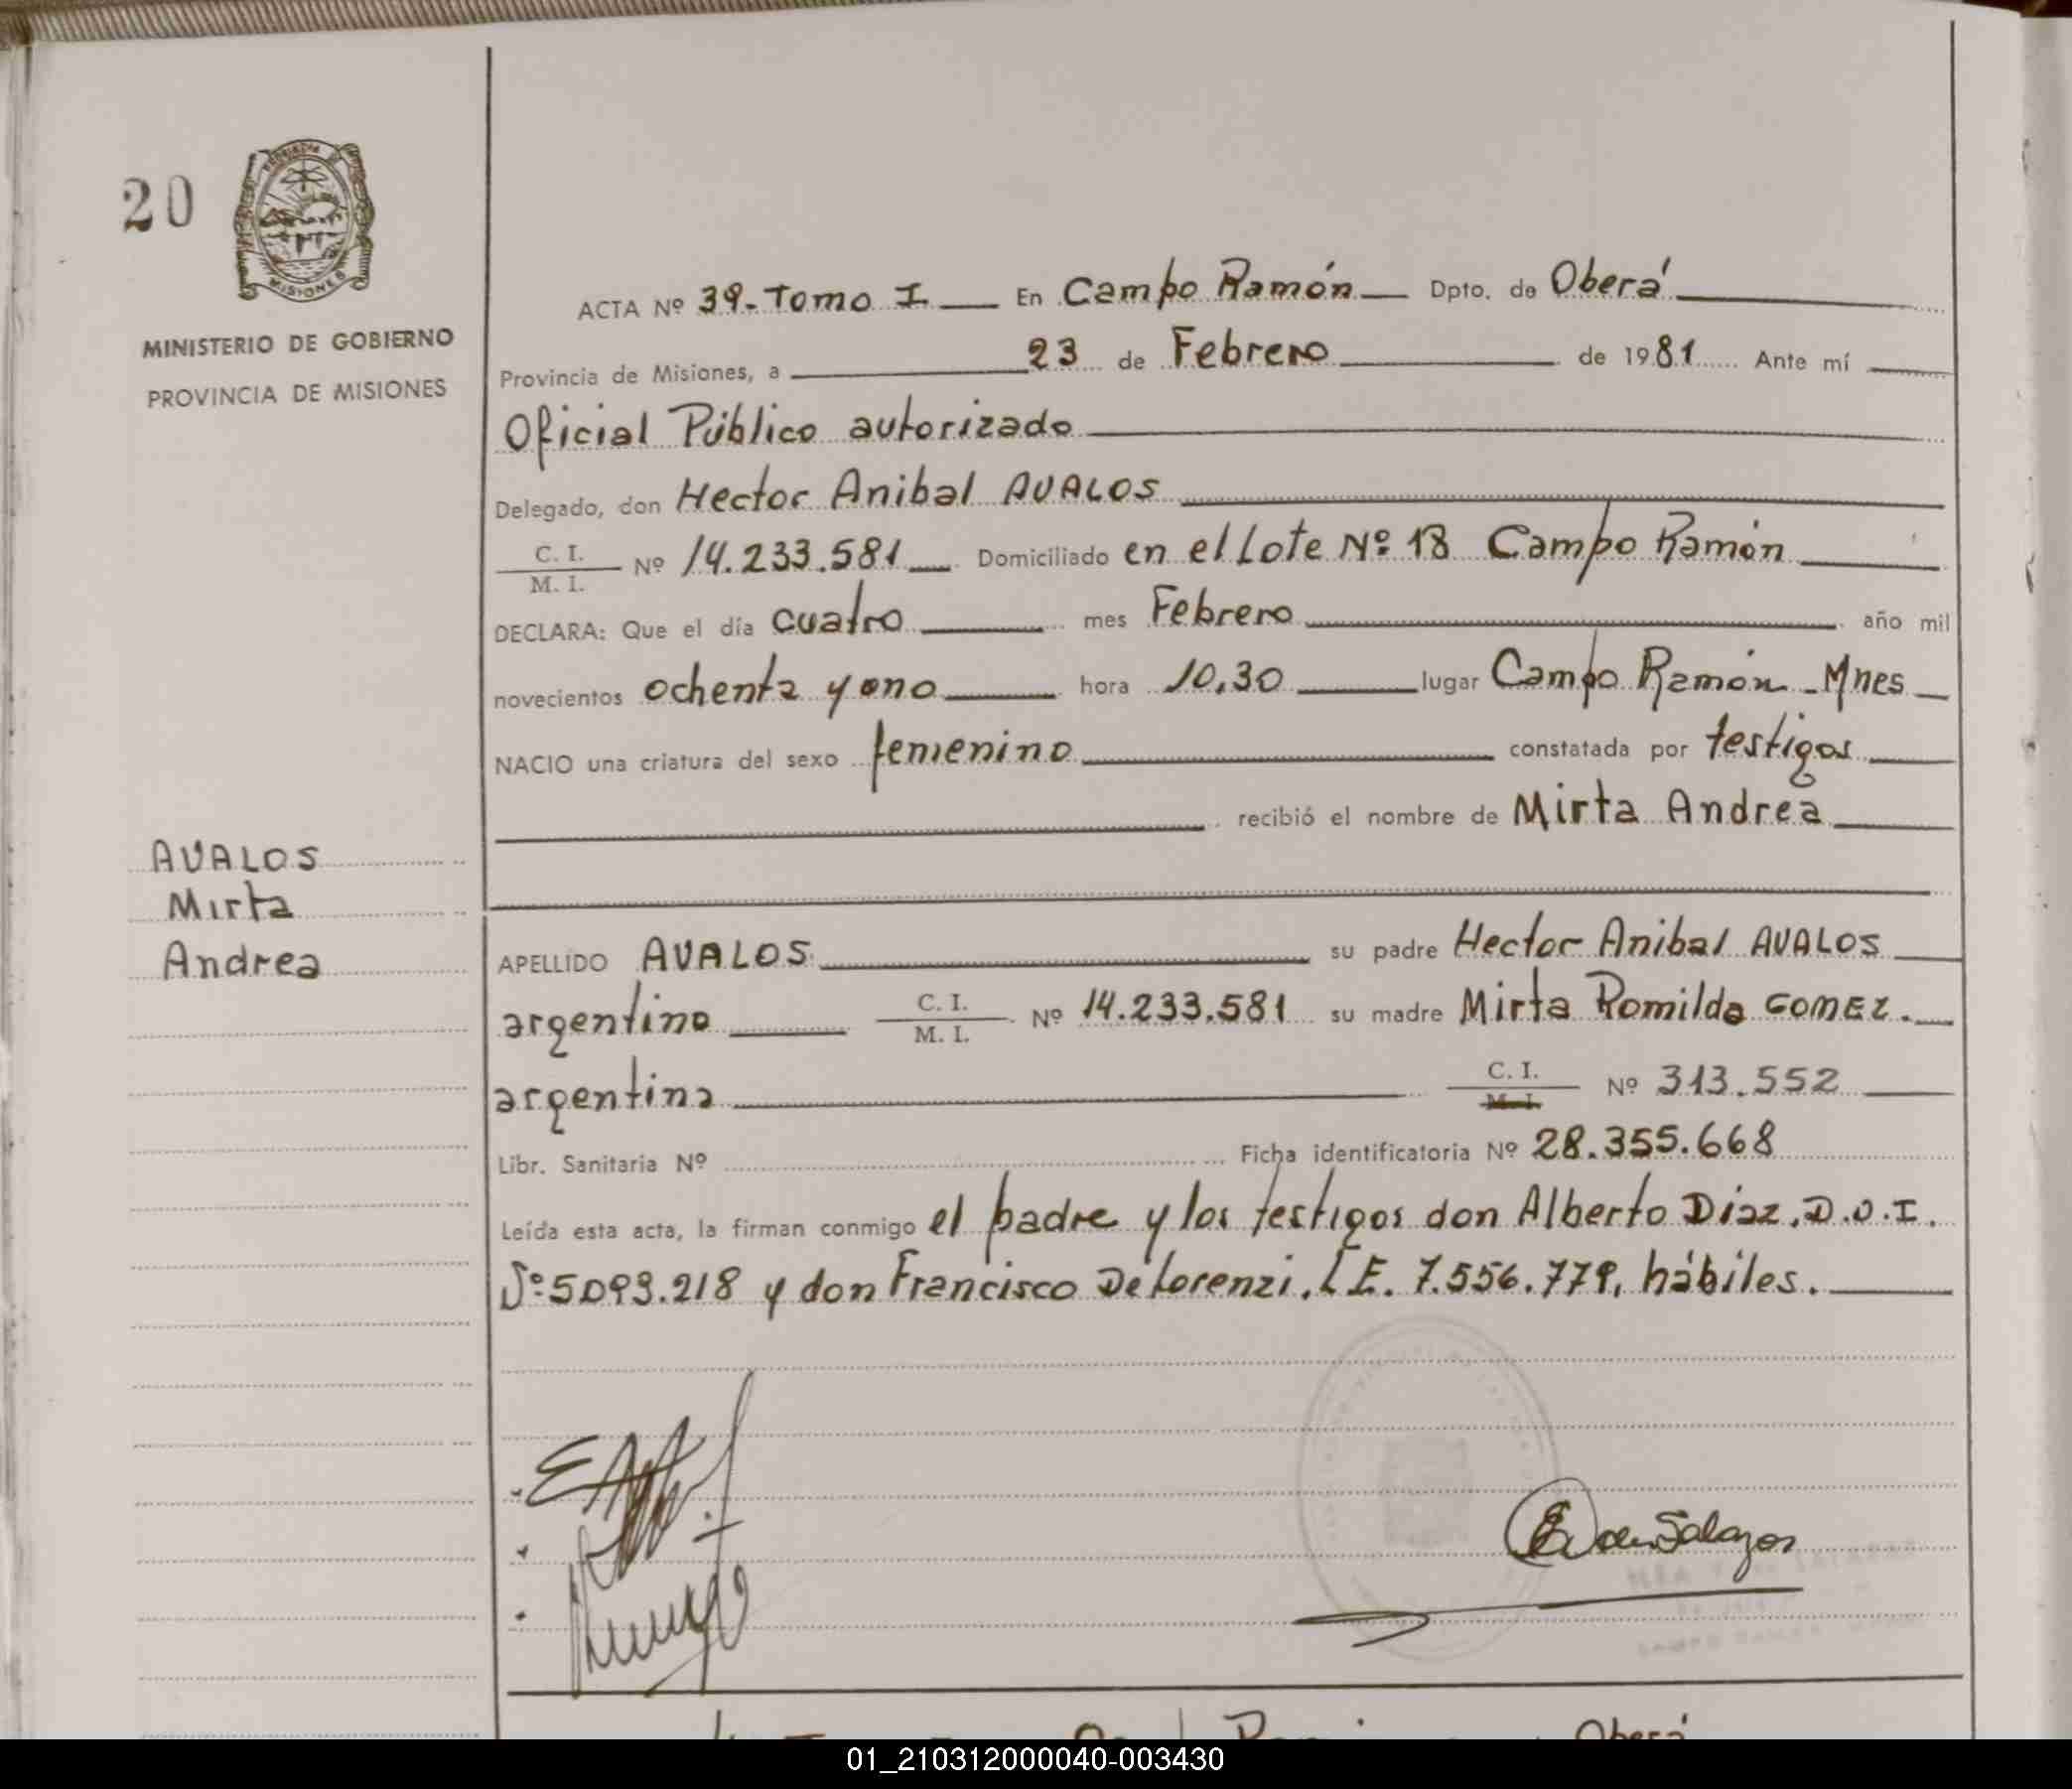 20
PROVINCIA
MISIONES
MINISTERIO DE GOBIERNO
PROVINCIA DE MISIONES
ACTA Nº 39-Tomo I En Campo Ramón Dpto. de Oberá
Provincia de Misiones, a 23 de Febrero de 1981 Ante mí
Oficial Público autorizado
Delegado, don Hector Anibal AVALOS
C. I.
M. I. Nº 14.233.581 Domiciliado en el Lote Nº 18 Campo Ramón
DECLARA: Que el día cuatro mes Febrero año mil
novecientos ochenta y uno hora 10,30 lugar Campo Ramón - Mnes
NACIO una criatura del sexo femenino constatada por testigos
recibió el nombre de Mirta Andrea
AVALOS
Mirta
Andrea
APELLIDO AVALOS su padre Hector Anibal AVALOS
argentino C. I. M. I. Nº 14.233.581 su madre Mirta Romilda GOMEZ.
argentina C. I. M. I. Nº 313.552
Libr. Sanitaria Nº Ficha identificatoria Nº 28.355.668
Leída esta acta, la firman conmigo el padre y los testigos don Alberto Diaz, D.O.I.
Nº 5093.218 y don Francisco De Lorenzi, L.E. 7.556.779, hábiles.
de Salazar
01_210312000040-003430